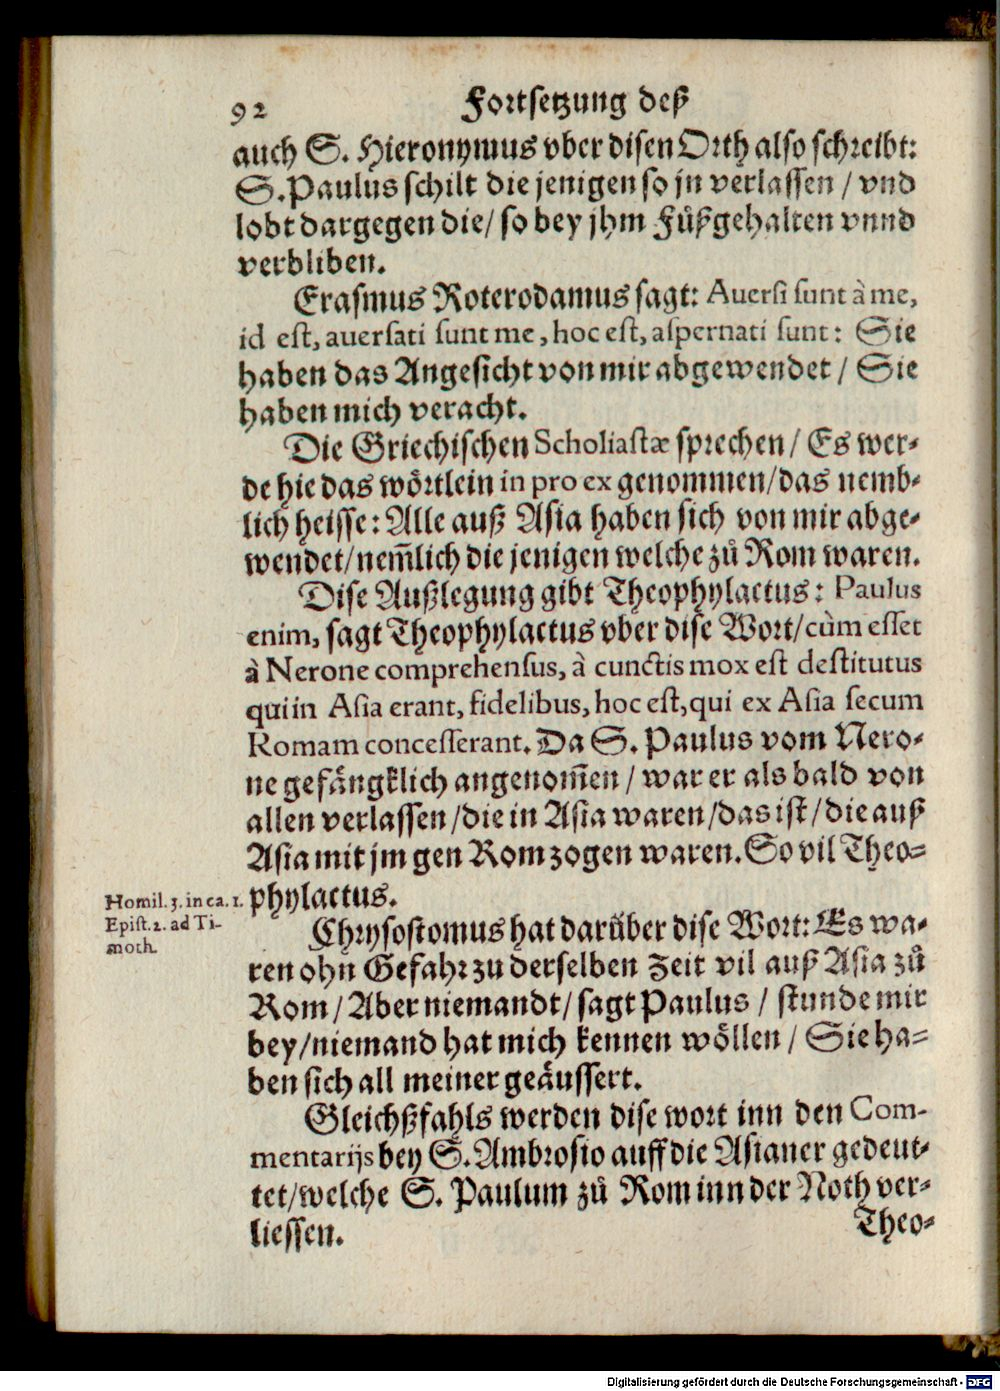 92 Fortsetzung deß
auch S. Hieronymus vber disen Orth also schreibt:
S. Paulus schilt die jenigen so jn verlassen / vnd
lobt dargegen die/ so bey jhm Fůßgehalten vnnd
verbliben.
Erasmus Roterodamus sagt: Aversi sunt à me,
id est, aversati sunt me, hoc est, aspernati sunt: Sie
haben das Angesicht von mir abgewendet / Sie
haben mich veracht.
Die Griechischen Scholiastæ sprechen / Es wer-
de hie das wörtlein in pro ex genommen/das nemb-
lich heisse: Alle auß Asia haben sich von mir abge-
wendet/nem̃lich die jenigen welche zů Rom waren.
Dise Außlegung gibt Theophylactus: Paulus
enim, sagt Theophylactus vber dise Wort/cùm esset
à Nerone comprehensus, à cunctis mox est destitutus
qui in Asia erant, fidelibus, hoc est, qui ex Asia secum
Romam concesserant. Da S. Paulus vom Nero-
ne gefängklich angenom̃en / war er als bald von
allen verlassen/die in Asia waren/das ist/die auß
Asia mit jm gen Rom zogen waren. So vil Theo-
phylactus.
Homil. 3. in ca. 1.
Epist. 2. ad Ti-
moth.
Chrysostomus hat darüber dise Wort: Es wa-
ren ohn Gefahr zu derselben Zeit vil auß Asia zů
Rom / Aber niemandt/ sagt Paulus / stunde mir
bey/niemand hat mich kennen wöllen / Sie ha-
ben sich all meiner geäussert.
Gleichßfahls werden dise wort inn den Com-
mentarijs bey S. Ambrosio auff die Asianer gedeut-
tet/welche S. Paulum zů Rom inn der Noth ver-
liessen.
Theo-
Digitalisierung gefördert durch die Deutsche Forschungsgemeinschaft - DFG